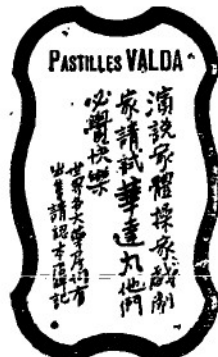 PASTILLES VALDA
演說家體操家戲劇
家請試華達丸他們
必覺快樂
世界各大藥房有
出售請認本店牌記